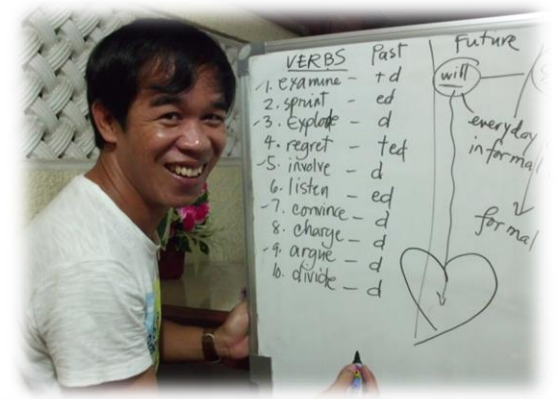 VERBS Past
1. examine - +d
2. sprint - ed
3. Explode - d
4. regret - ted
5. involve - d
6. listen - ed
7. convince - d
8. charge - d
9. argue - d
10. divide - d
Future
will
everyday
informal
formal